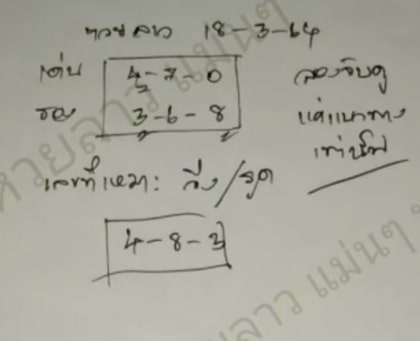 หวยลาว 18-3-64
เด่น 4-7-0
รอง 3-6-8
ลองจับคู่
แค่แนวทาง
เท่านั้น
เลขที่เหมาะ: วิ่ง/รูด
4-8-3
หวยลาว แม่นๆ
หวยลาว แม่นๆ